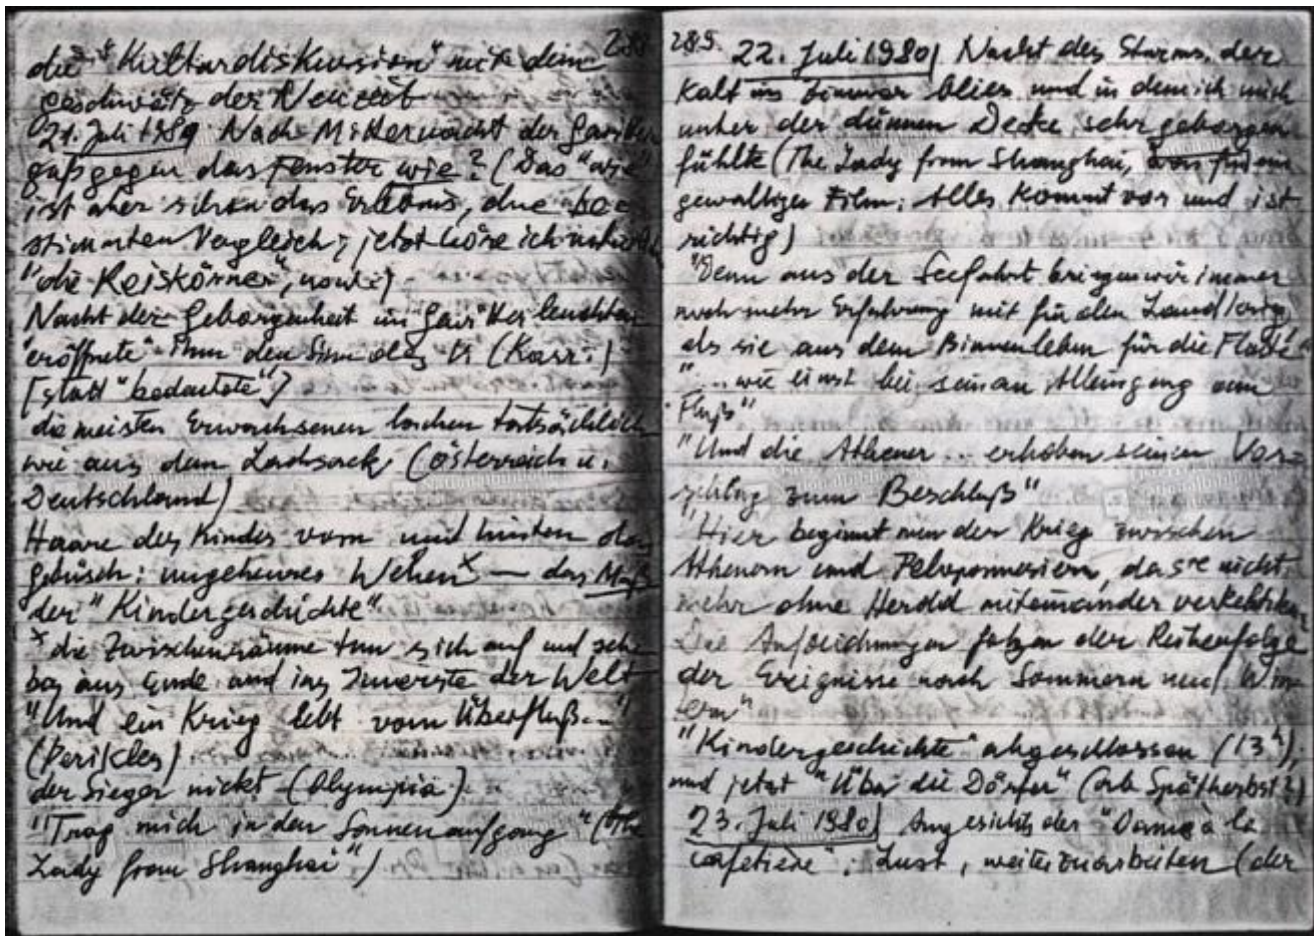 288
die "Kulturdiskussion" mit dem
Geschwätz der Neuzeit
21. Juli 1980 Nach Mitternacht der
gegen das Fenster wie? (Das "wie"
ist aber schon das Erlebnis, die be-
stimmten Vergleich; jetzt höre ich
"die Reiskörner",
Nacht der Geborgenheit im Gewitterleuchten
"eröffnete" ihm den Sinn des
[statt "bedeutete"]
die meisten Erwachsenen lachen tatsächlich
wie aus dem Lachsack (Österreich u.
Deutschland)
Haare des Kindes vorn und hinten das
Gebüsch: ungeheures Wehen x — das Maß
der "Kindergeschichte"
x die Zwischenräume tun sich auf und
bis ans Ende und ins Innerste der Welt
"Und ein Krieg lebt vom Überfluß..."
(Perikles)
der Sieger nickt (Olympia)
"Trag mich in den Sonnenaufgang" (The
Lady from Shanghai")
289.
22. Juli 1980 Nacht des Sturms, der
kalt ins Zimmer blies und in dem ich mich
unter der dünnen Decke sehr geborgen
fühlte (The Lady from Shanghai, was für ein
gewaltiger Film: Alles kommt vor und ist
richtig)
"Denn aus der Seefahrt bringen wir immer
noch mehr Erfahrung mit für den Landkrieg
als sie aus dem Binnenleben für die Flotte"
"... wie einst bei seinem Alleingang am
Fluß"
"Und die Athener ... erhoben seinen Vor-
schlag zum Beschluß"
"Hier beginnt nun der Krieg zwischen
Athenern und Peloponnesiern, da sie nicht
mehr ohne Herold miteinander verkehrten
Die Aufzeichnungen folgen der Reihenfolge
der Ereignisse nach Sommern und Win-
tern"
"Kindergeschichte" abgeschlossen (13h),
und jetzt "Über die Dörfer" (ab Spätherbst?)
23. Juli 1980 Angesichts der "Dame à la
cafetière": Lust, weiterzuarbeiten (der